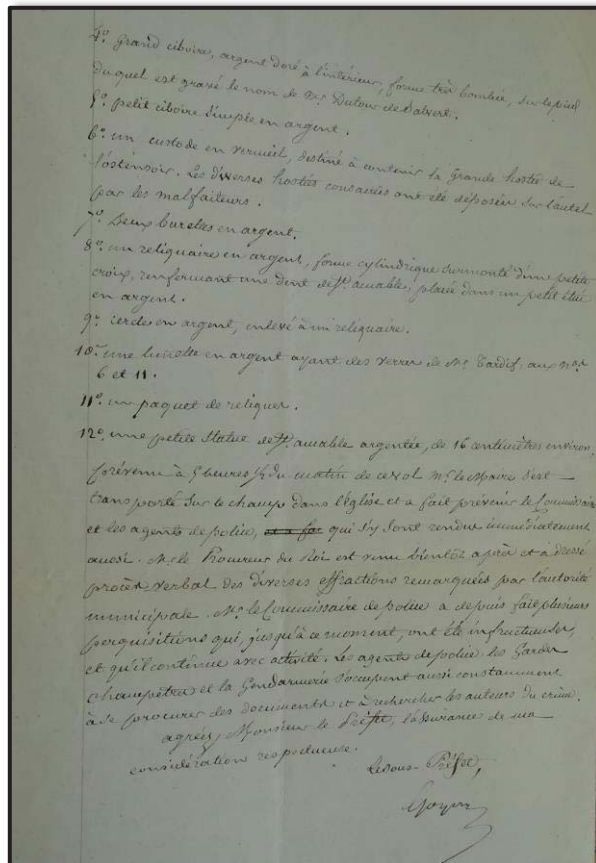 4° grand ciboire, argent doré à l'intérieur, forme très bombée, sur le pied
duquel est gravé le nom de Mr. Dutour de Salvert.
5° petit ciboire simple en argent.
6° un custode en vermeil, destiné à contenir la grande hostie de
l'ostensoir. Les diverses hosties consacrées ont été déposées sur l'autel
par les malfaiteurs.
7° Deux burettes en argent.
8° un reliquaire en argent, forme cylindrique surmonté d'une petite
croix, renfermant une dent de St. amable, placée dans un petit étui
en argent.
9° cercle en argent, enlevé à un reliquaire.
10° une lunette en argent ayant des verres de Mr Tardif, aux nos
6 et 11.
11° un paquet de reliques.
12° une petite statue de St. amable argentée, de 16 centimètres environ.
prévenu à 5 heures 1/2 du matin de ce vol Mr. le Maire s'est
transporté sur le champ dans l'église et a fait prévenir le Commissaire
et les agents de police, qui s'y sont rendus immédiatement
aussi. Mr. le Procureur du Roi est venu bientôt après et a dressé
procès verbal des diverses effractions remarquées par l'autorité
municipale. Mr. le Commissaire de police a depuis fait plusieurs
perquisitions qui, jusqu'à ce moment, ont été infructueuses,
et qu'il continue avec activité. Les agents de police, les Gardes
champêtres et la Gendarmerie s'occupent aussi constamment
à se procurer des documents et à rechercher les auteurs du crime.
agréez, Monsieur le Préfet, l'assurance de ma
considération respectueuse.
Le Sous-Préfet,